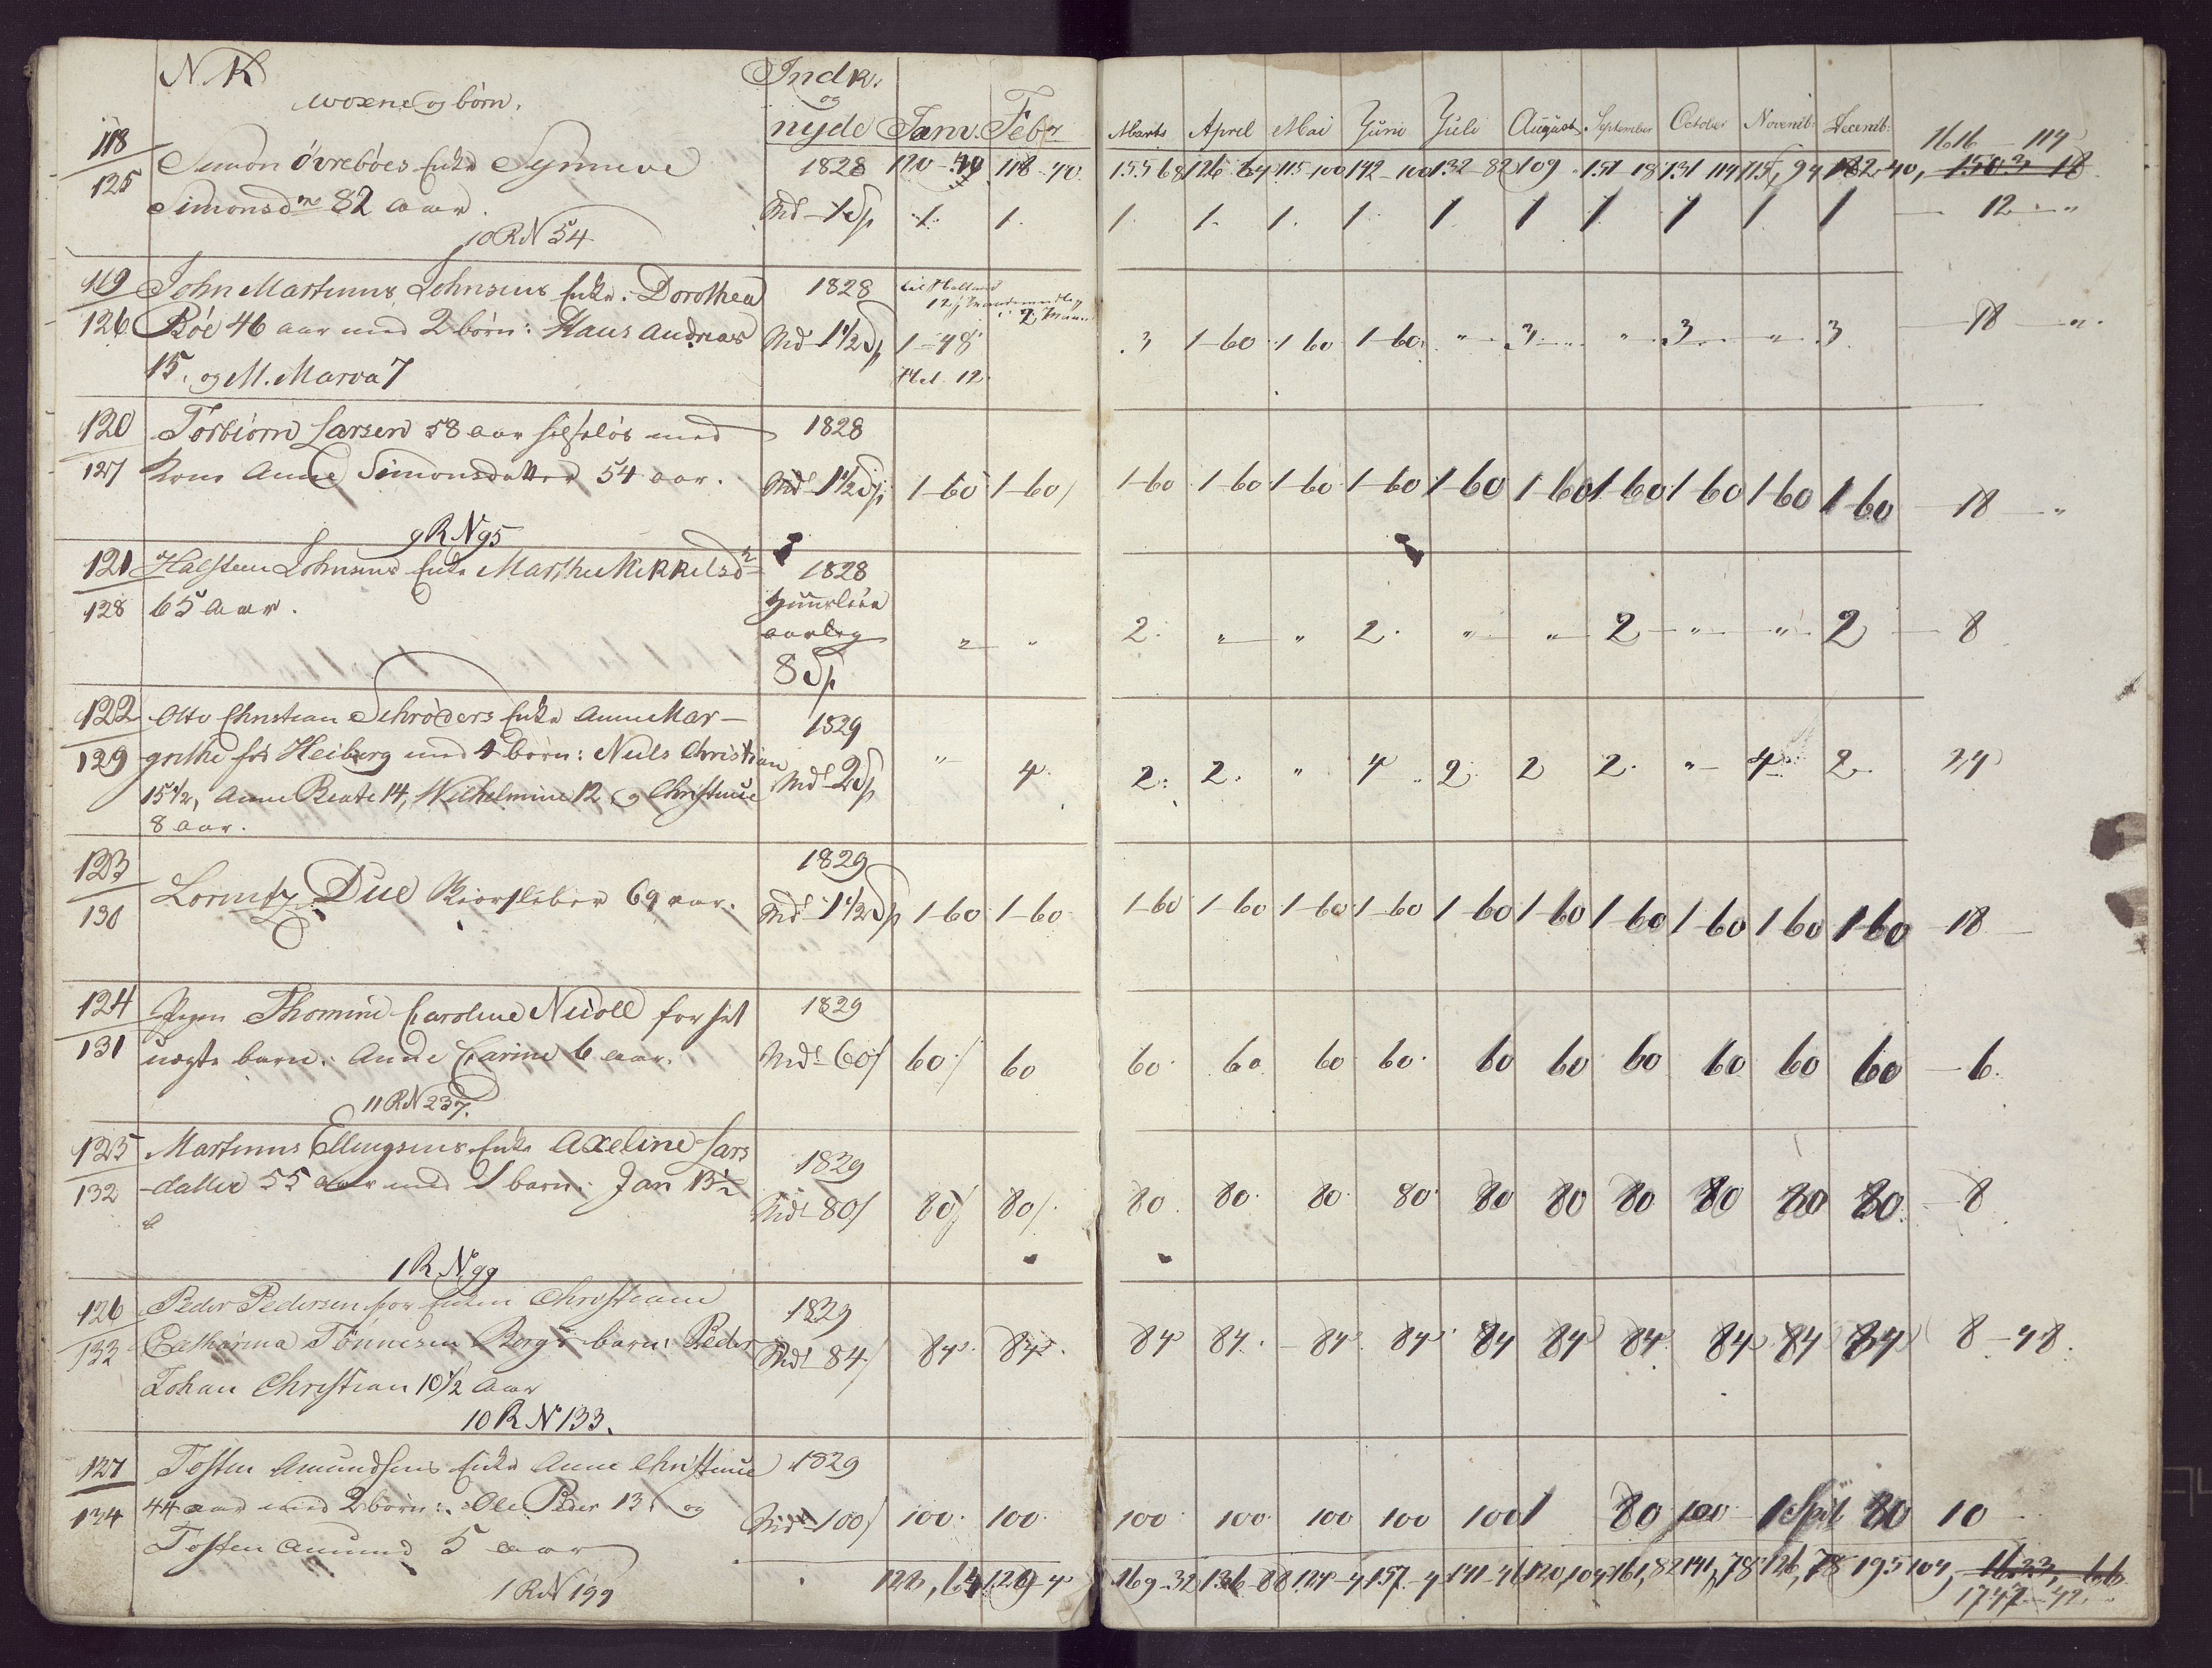 N. K
woxne og børn.
Indk. og nyde Janv. Febr Marts April Mai Juni Juli August September October Novemb: Decemb:
1616 - 114
118 Simon Øvrebøes Enke Synneve 1828 118-40 155 68 126-64 115-100 142-100 132-82 109 151-18 131 114 182-40, 1503-18
125 Simonsd 82 aar. Md-1 Sp 1. 1. 1. 1. 1. 1. 1 1 1 1 1 1 12 "
10 R N 54
119 John Martinus Johnsens Enke: Dorothea 1828
126 Böe 46 aar med 2 børn: Hans Andreas Md 1 1/2 Sp 1-48 3 1-60 1 60 1-60 " 3 " 3 " 3 18 "
15. og M. Marva 7
120 Torbiørn Larsen 58 aar med 1828
127 Kone Anne Simonsdatter 54 aar. Md 1 1/2 Sp 1-60 1-60 1-60 1-60 1-60 1-60 1-60 1-60 1-60 1-60 1-60 1-60 18 "
9 R N 95
121 Halsten Johnsens Enke Marthe Mikkelsd 1828
128 65 aar. aarlig 8 Sp " " 2. " " 2. " " 2 " " 2 8
122 Otto Christian Schrøders Enke Anne Mar- 1829
129 grethe fød Heiberg med 4 børn: Niels Christian Md 2 Sp " 4. 2. 2. " 4 2. 2 2. " 4 2. 24
15 1/2, Anne Beate 14, Wilhelmine 12 og Christine
8 aar.
123 1829
130 Lorentz Due 69 aar. Md 1 1/2 Sp 1-60 1-60 1-60 1-60 1-60 1-60 1-60 1-60 1-60 1-60 1-60 1-60 18
124 Pigen Thomine Caroline Nicoll for sit 1829
131 uægte barn: Anne Carine 6 aar. Md 60 60 60 60 60 60 60 60 60 60 60 60 60 6.
11 R N 237.
125 Martinus Ellingsens Enke Axeline Lars 1829
132 -datter 55 aar med 1 barn: Jan 13 1/2 Md 80 80 80 80 80 80 80 80 80 80 80 80 80 8
1 R N 99
126 Peder Pedersen for Enken Christiane 1829
133 Catharina Tønnesen Borgs barn: Peder Md 84 84 84 84 84 84 84 84 84 84 84 84 84 8-48.
Johan Christian 10 1/2 aar
10 R N 133.
127 Tosten Amundsens Enke Anne Christine 1829
134 44 aar med 2 børn: Ole Peder 13 og Md 100 100 100 100 100 100 100 100 1 80 100 1 80 10
Tosten Amund 5 aar
128, 64 129-4 169-32 136-88 124-4 157-4 141-46 120,104 161,82 141,78 126,78 195 104, 1633, 66
1 R N 199 1747-42